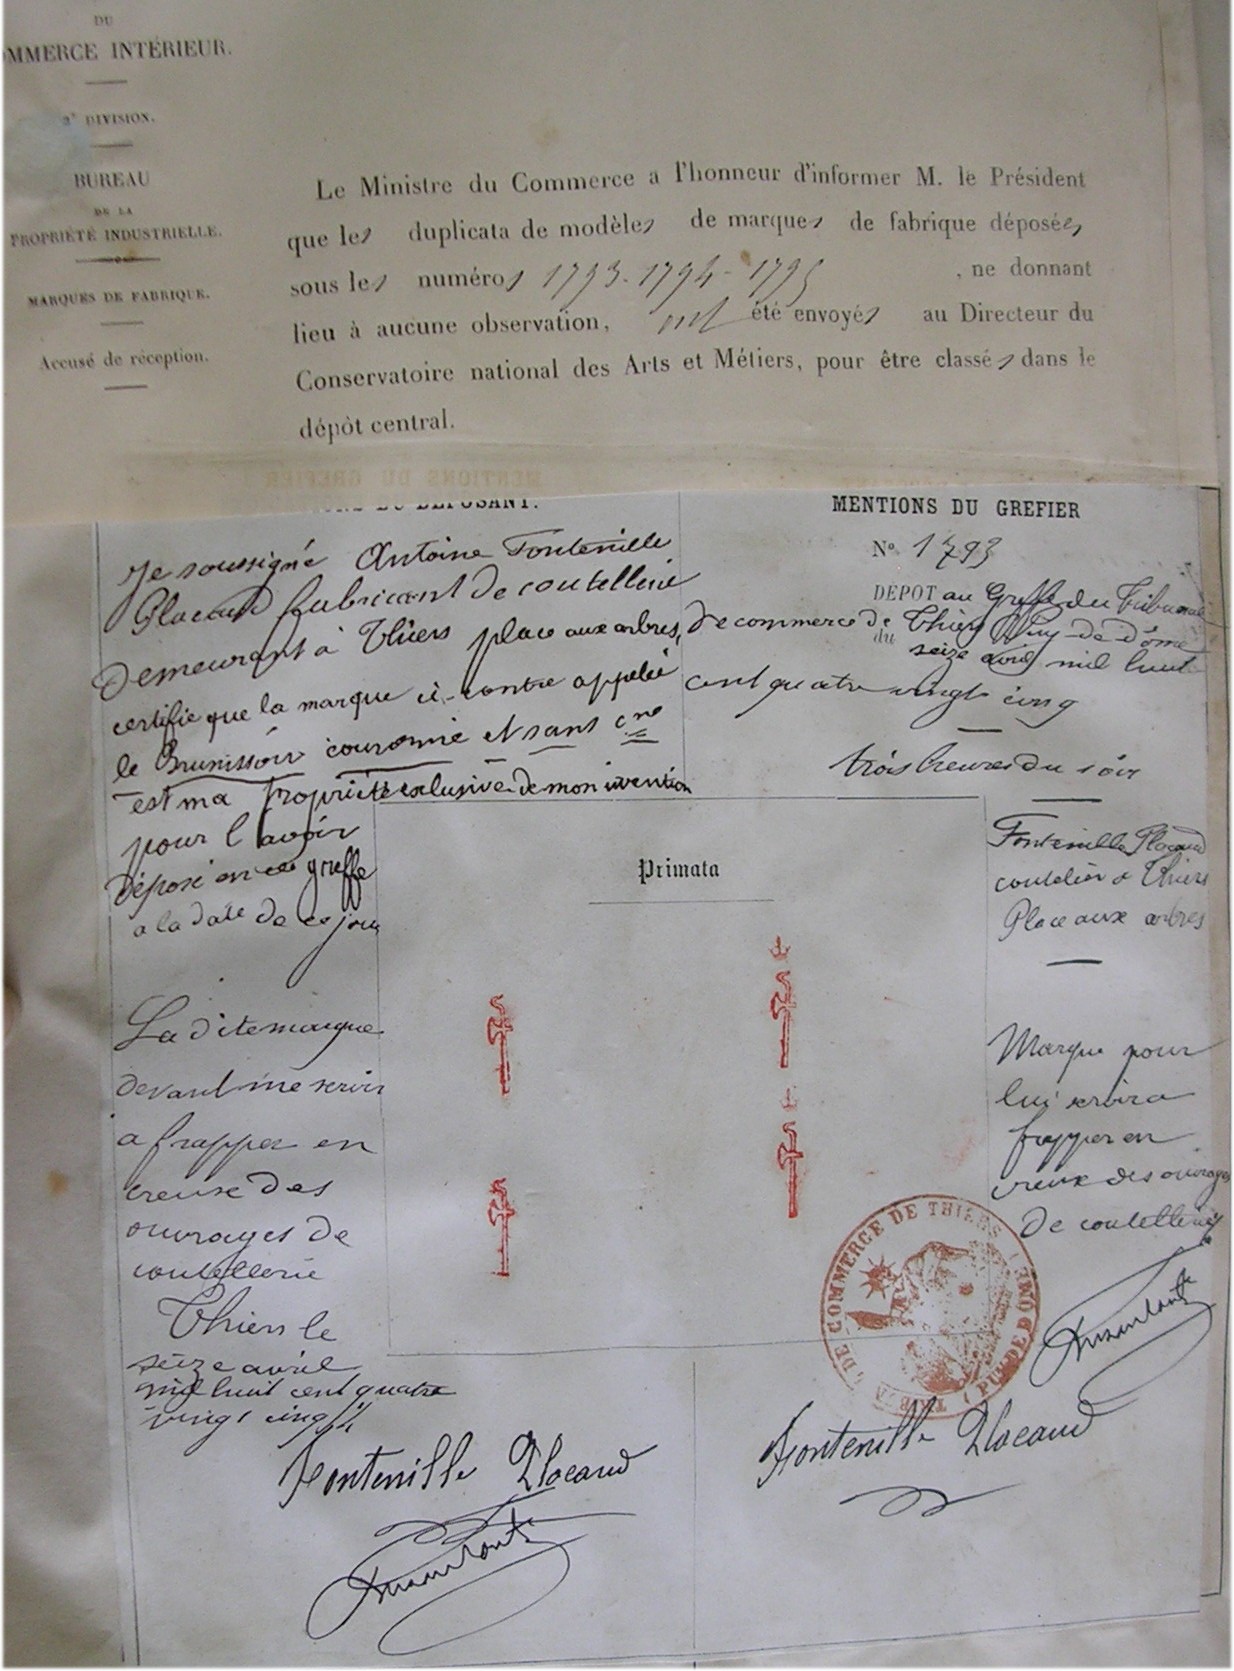 DU
COMMERCE INTÉRIEUR.
2e DIVISION.
BUREAU
DE LA
PROPRIÉTÉ INDUSTRIELLE.
MARQUES DE FABRIQUE.
Accusé de réception.
Le Ministre du Commerce a l'honneur d'informer M. le Président
que les duplicata de modèles de marques de fabrique déposées
sous les numéros 1793-1794-1795, ne donnant
lieu à aucune observation, ont été envoyés au Directeur du
Conservatoire national des Arts et Métiers, pour être classés dans le
dépôt central.
DU DÉPOSANT.
Je soussigné Antoine Fontenille
Placaud fabricant de coutellerie
demeurant à Thiers place aux arbres,
certifie que la marque ci-contre appelée
le Brunissoir couronné et sans cne
est ma propriété exclusive de mon invention
pour l'avoir
déposé en ce greffe
a la date de ce jour
La dite marque
devant me servir
a frapper en
creux des
ouvrages de
coutellerie
Thiers le
seize avril
mil huit cent quatre
vingt cinq
Fontenille Placaud
MENTIONS DU GREFIER
No. 1793
DÉPOT au Greffe du Tribunal
de commerce de Thiers Puy-de-Dôme
du seize avril mil huit
cent quatre vingt cinq
trois heures du soir
Primata
Fontenille Placaud
coutelier à Thiers
Place aux arbres
Marque pour
lui servir a
frapper en
creux des ouvrages
de coutellerie
DE COMMERCE DE THIERS
(PUY DE DOME)
Fontenille Placaud